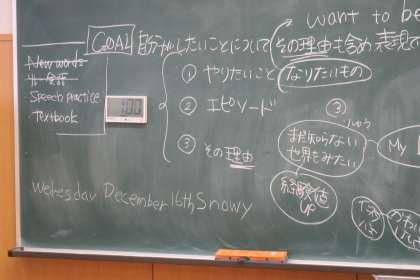 want to be
GOAL 自分がしたいことについてその理由も含め表現で
New words
Speech practice
Textbook
1:00
① やりたいこと なりたいもの
② エピソード
③ その理由
③
まだ知らない
世界をみたい
My
経験値
UP
Wednesday December 16th Snowy